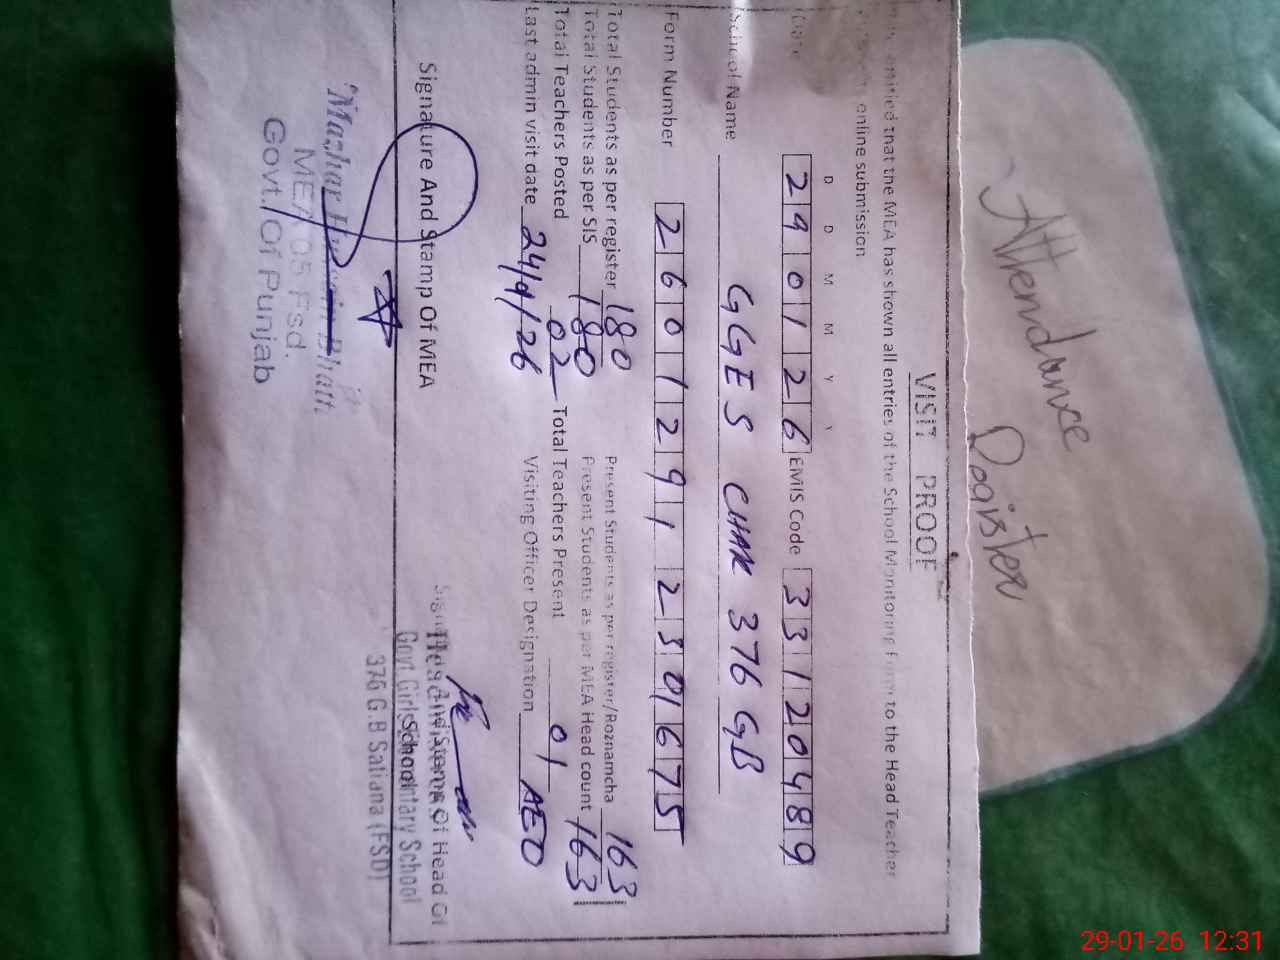 Attendance
Register
VISIT PROOF
entified that the MEA has shown all entries of the School Monitoring Form to the Head Teacher
online submission
D D M M Y Y
Date 290126 EMIS Code 33120489
School Name GGES CHAK 376 GB
Form Number 26012912301675
Total Students as per register 180 Present Students as per register/Roznamcha 163
Total Students as per SIS 180 Present Students as per MEA Head count 163
Total Teachers Posted 02 Total Teachers Present 01
Last admin visit date Visiting Officer Designation AEO
Signature And Stamp Of MEA
Of Head Of
MEA 05 Fsd.
Govt. Of Punjab
Govt Girls School
376 G.B Satiana (FSD)
29-01-26 12:31